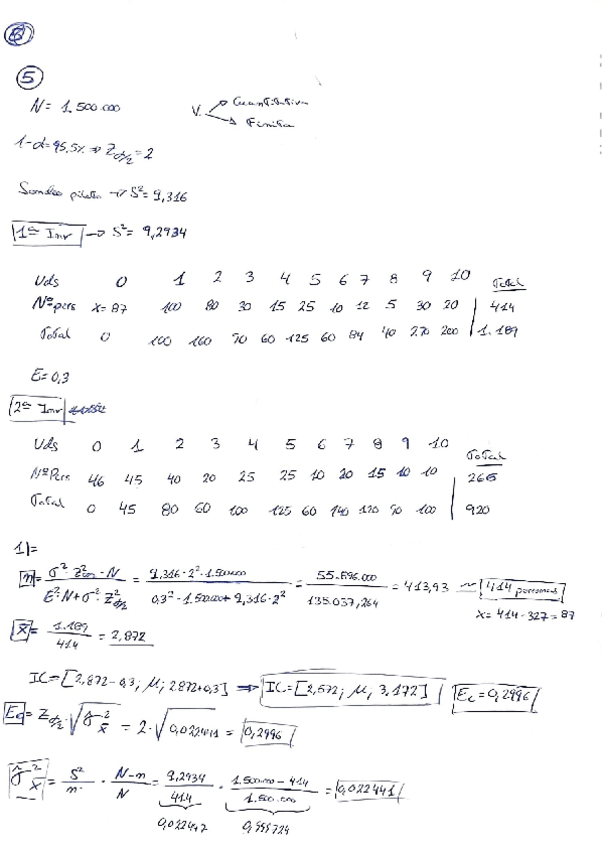 5
N = 1.500.000 V. Cuantitativa
Finita
1-α=95,5% ⇒ Zα/2 = 2
Sondeo piloto → S² = 9,316
1ª Inv → S² = 9,2934
Uds 0 1 2 3 4 5 6 7 8 9 10 Total
Nº pers x=87 100 80 30 15 25 10 12 5 30 20 414
Total 0 100 160 90 60 125 60 84 40 270 200 1.189
E=0,3
2ª Inv
Uds 0 1 2 3 4 5 6 7 8 9 10 Total
Nº Pers 46 45 40 20 25 25 10 20 15 10 10 266
Total 0 45 80 60 100 125 60 140 120 90 100 920
1)=
n = σ²·Z²α/2·N / E²·N+σ²·Z²α/2 = 9,316·2²·1.500.000 / 0,3²·1.500.000+9,316·2² = 55.896.000 / 135.037,264 = 413,93 ~ 414 personas
x = 414-327 = 87
x̄ = 1.189 / 414 = 2,872
IC = [2,872-0,3; μ; 2,872+0,3] ⇒ IC = [2,572; μ, 3,172] Ec = 0,2996
Ec = Zα/2·√σ̂²x̄ = 2·√0,022441 = 0,2996
σ̂²x̄ = S²/n · N-n/N = 9,2934/414 · 1.500.000-414/1.500.000 = 0,022441
0,022447 0,999724